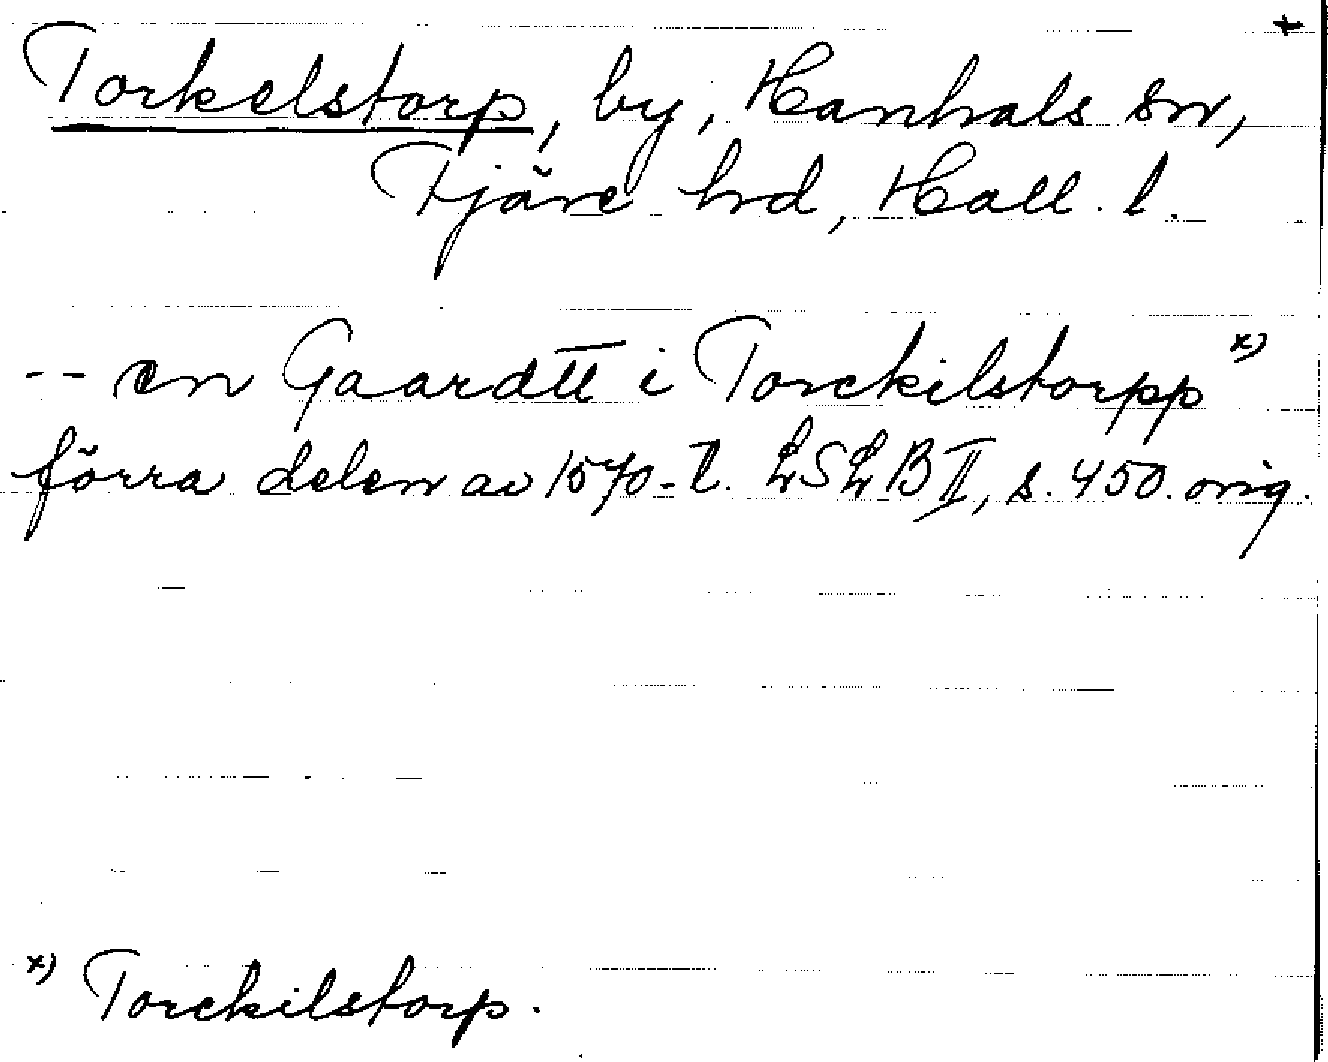 +
Torkelstorp, by, Hanhals sn,
Fjäre hd, Hall. l.
-- en Gaardtt i Torckilstorpp x)
förra delen av 1570-t. LSLB II, s. 450. orig.
x) Torckilstorp.